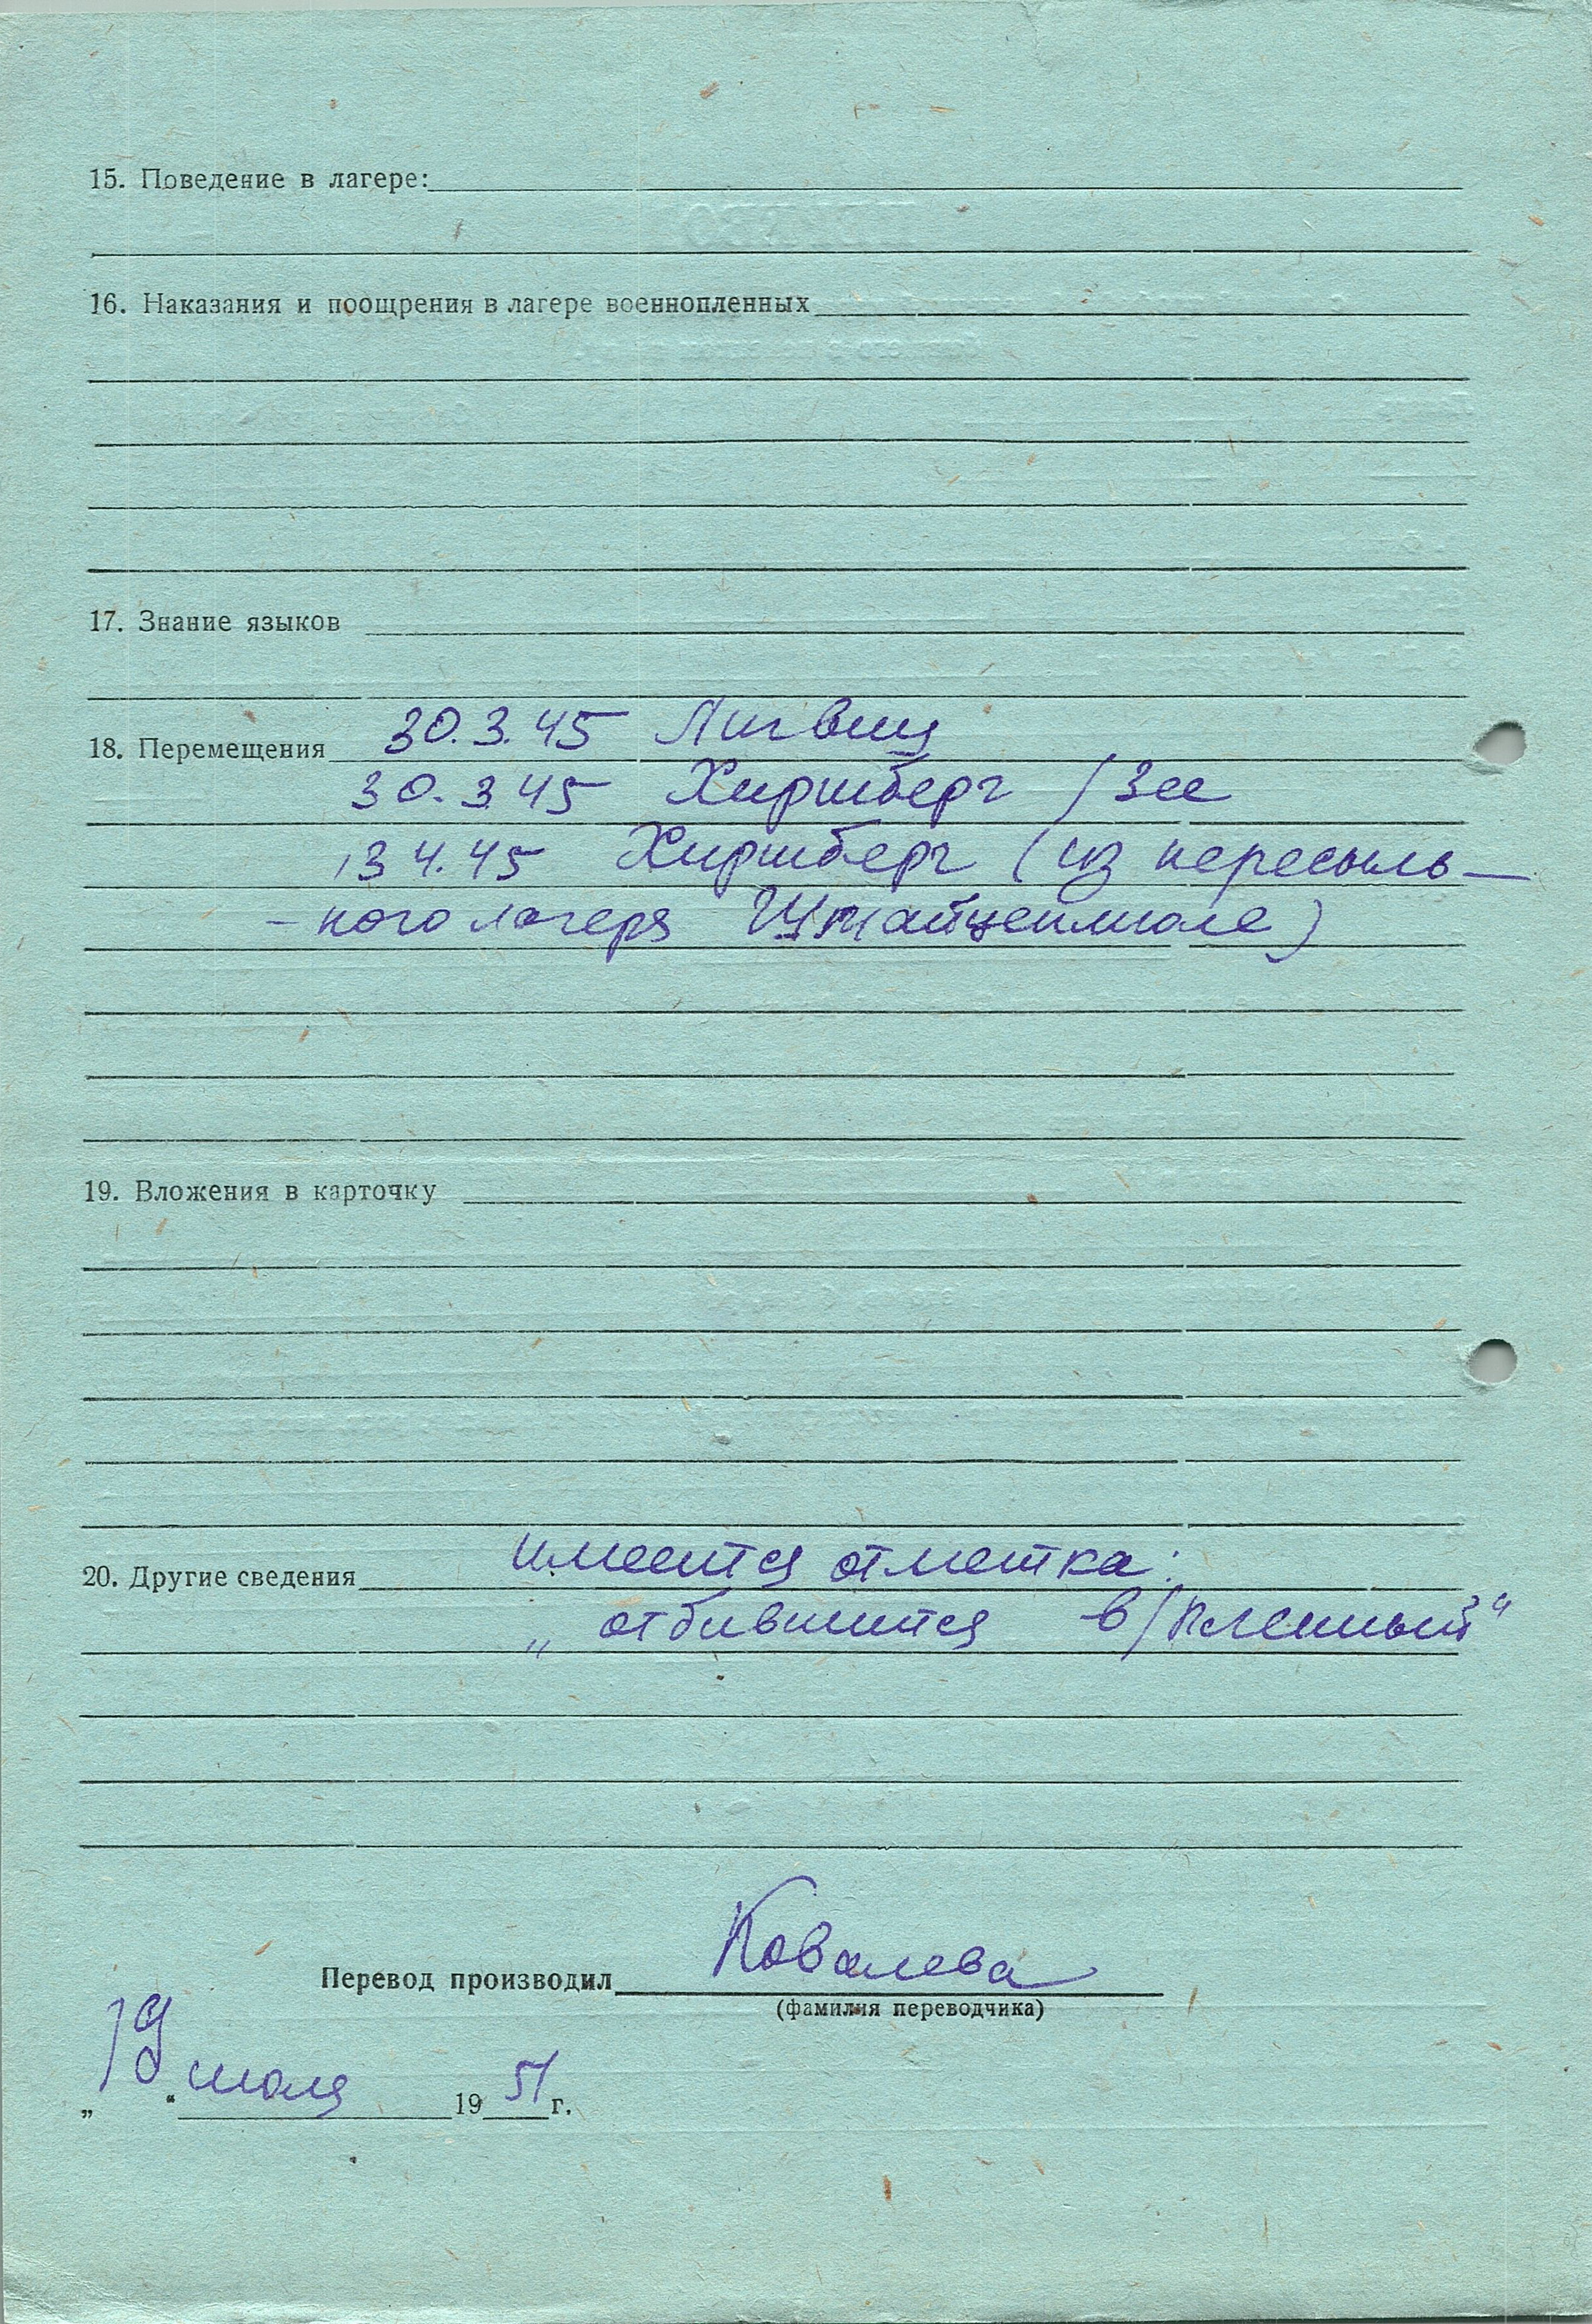 15. Поведение в лагере:
16. Наказания и поощрения в лагере военнопленных
17. Знание языков
18. Перемещения 30.3.45 Лигвиц
30.3 45 Хиршберг / Зее
13 4.45 Хиршберг (из пересыль-
-ного лагеря Штайцеимюле)
19. Вложения в карточку
20. Другие сведения имеется отметка:
„ отбившийся в/пленный"
Перевод производил Ковалева
(фамилия переводчика)
„ 19 " июля 19 51 г.